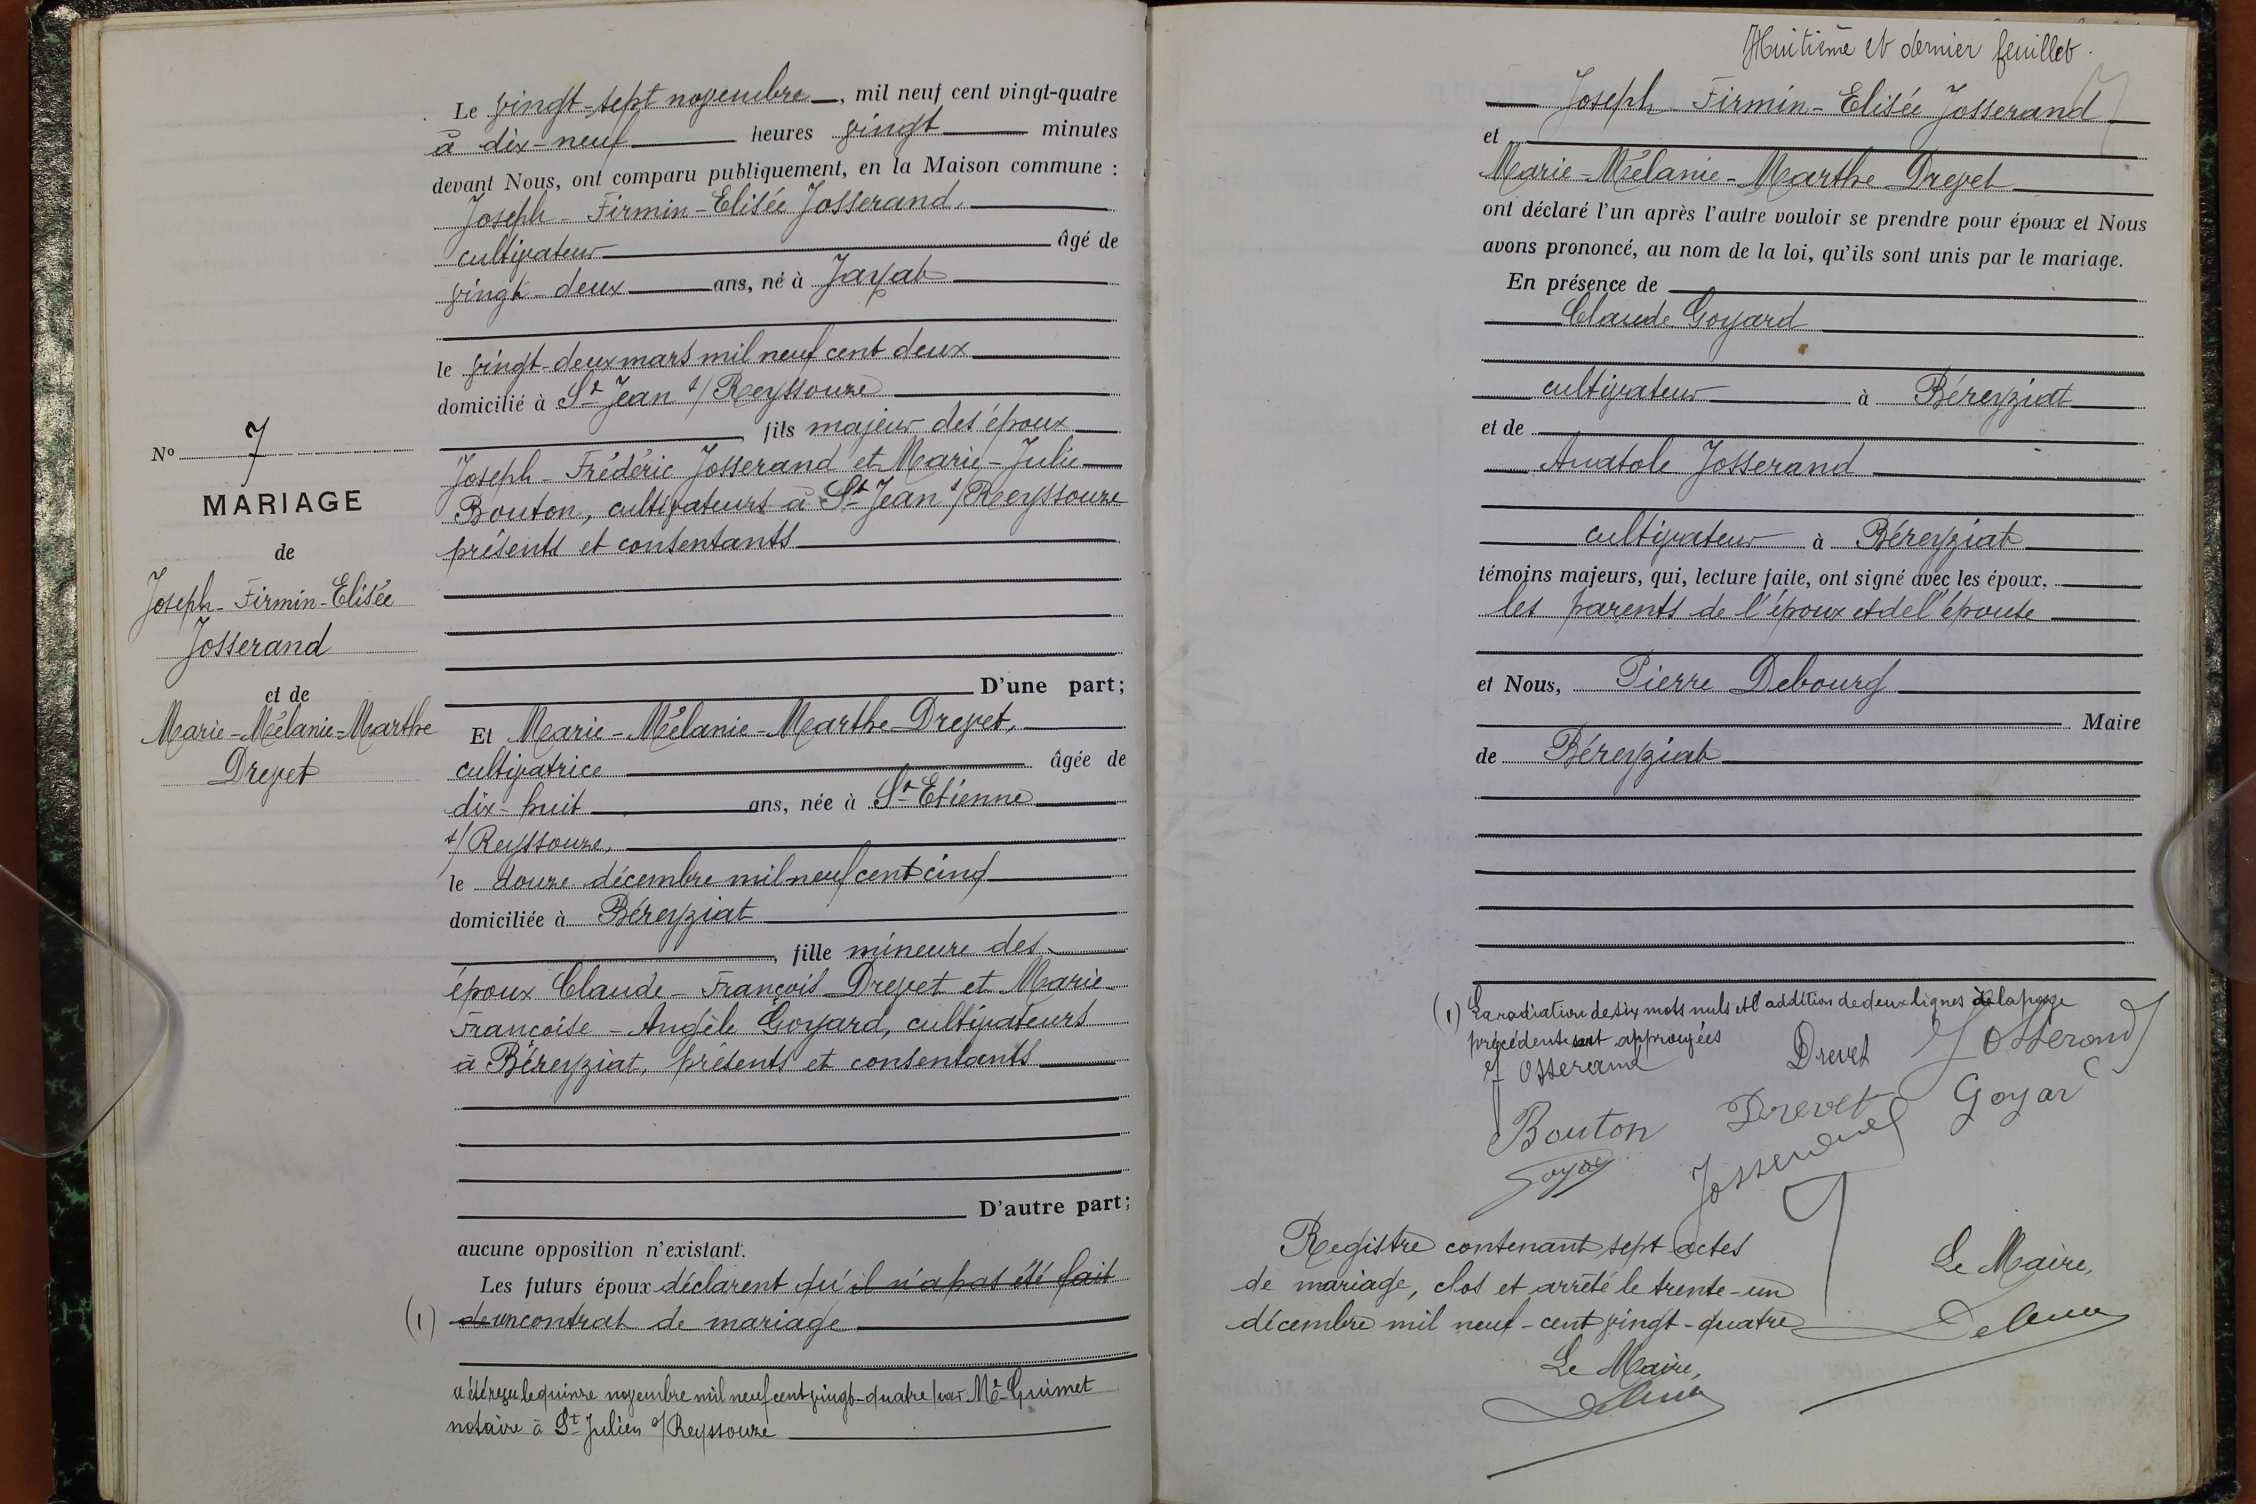 Le vingt-sept novembre, mil neuf cent vingt-quatre
à dix-neuf heures vingt minutes
devant Nous, ont comparu publiquement, en la Maison commune :
Joseph-Firmin-Elisée Josserand,
cultivateur âgé de
vingt-deux ans, né à Jayat
le vingt-deux mars mil neuf cent deux
domicilié à St Jean s/ Reyssouze
fils majeur des époux
Joseph-Frédéric Josserand et Marie-Julie
Bouton, cultivateurs à St Jean s/ Reyssouze
présents et consentants
D'une part;
Et Marie-Mélanie-Marthe Drevet,
cultivatrice âgée de
dix-huit ans, née à St Etienne
s/ Reyssouze,
le douze décembre mil neuf cent cinq
domiciliée à Béreyziat
, fille mineure des
époux Claude-François Drevet et Marie-
Françoise-Angèle Goyard, cultivateurs
à Béreyziat, présents et consentants
D'autre part;
aucune opposition n'existant.
Les futurs époux déclarent qu'il n'a pas été fait
(1) de un contrat de mariage
a été reçu le quinze novembre mil neuf cent vingt-quatre par Me Guimet
notaire à St Julien s/ Reyssouze
No 7
MARIAGE
de
Joseph-Firmin-Elisée
Josserand
et de
Marie-Mélanie-Marthe
Drevet
Huitième et dernier feuillet.
Joseph-Firmin-Elisée Josserand
et
Marie-Mélanie-Marthe Drevet
ont déclaré l'un après l'autre vouloir se prendre pour époux et Nous
avons prononcé, au nom de la loi, qu'ils sont unis par le mariage.
En présence de
Claude Goyard
cultivateur à Béreyziat
et de
Anatole Josserand
cultivateur à Béreyziat
témoins majeurs, qui, lecture faite, ont signé avec les époux,
les parents de l'époux et de l'épouse
et Nous, Pierre Debourg
Maire
de Béreyziat
(1) La radiation de six mots nuls et l'addition de deux lignes de la page
précédente sont approuvées
Josserand Drevet Josserand
Bouton Drevet Goyar
Josserand
Registre contenant sept actes
de mariage, clos et arrêté le trente-un
décembre mil neuf-cent vingt-quatre
Le Maire,
Le Maire,